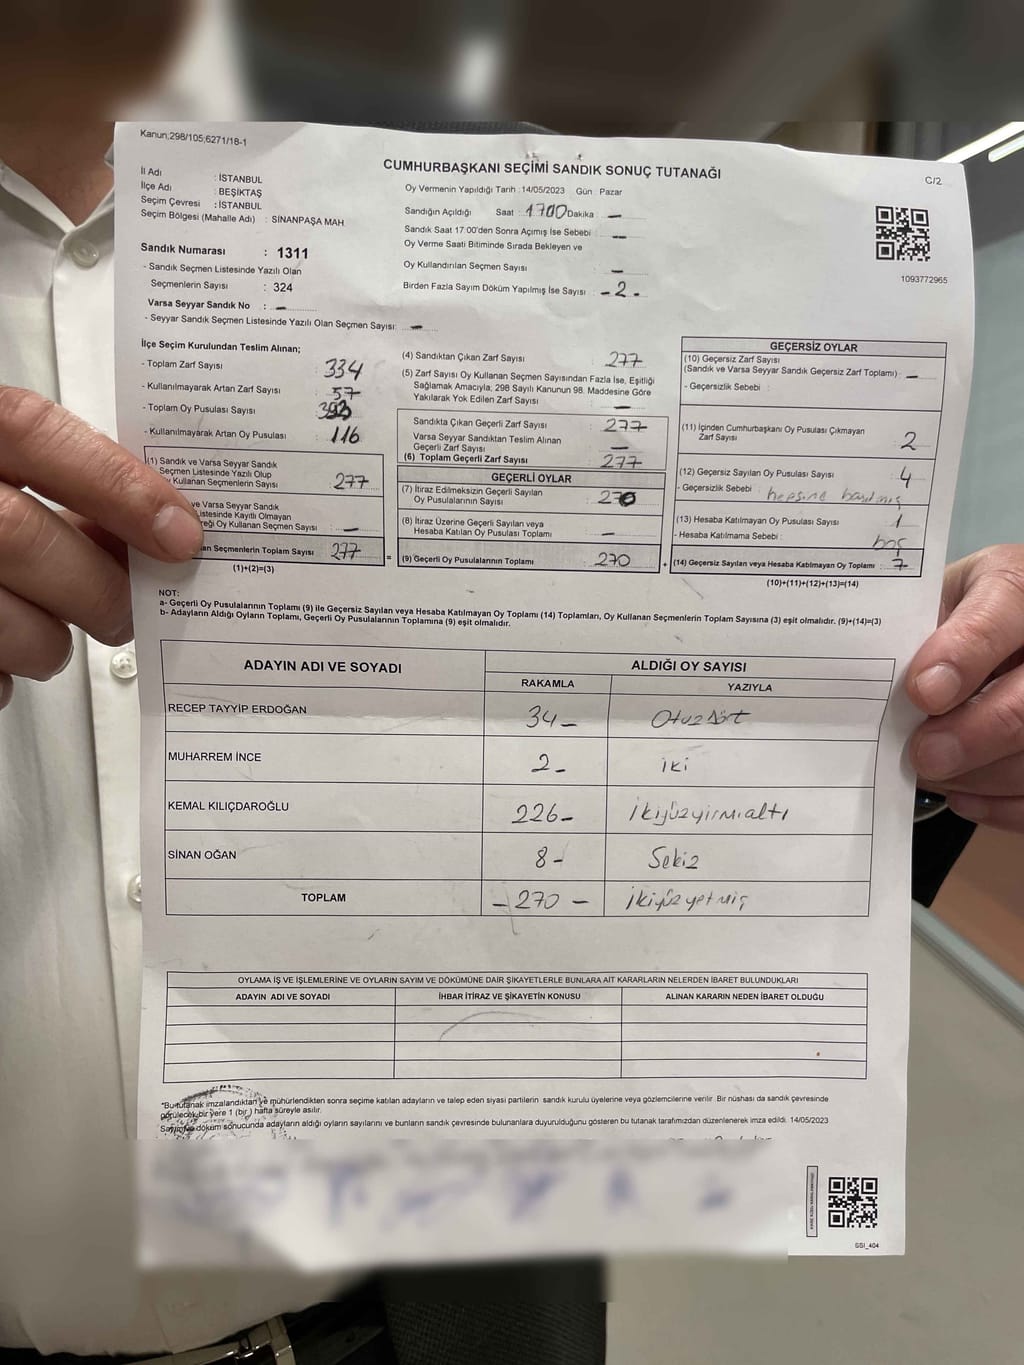 Kanun;298/105;6271/18-1
CUMHURBAŞKANI SEÇİMİ SANDIK SONUÇ TUTANAĞI
C/2
İl Adı : İSTANBUL
İlçe Adı : BEŞİKTAŞ
Seçim Çevresi : İSTANBUL
Seçim Bölgesi (Mahalle Adı) : SİNANPAŞA MAH.
Sandık Numarası : 1311
- Sandık Seçmen Listesinde Yazılı Olan
Seçmenlerin Sayısı : 324
Varsa Seyyar Sandık No : -
- Seyyar Sandık Seçmen Listesinde Yazılı Olan Seçmen Sayısı: -
Oy Vermenin Yapıldığı Tarih :14/05/2023 Gün : Pazar
Sandığın Açıldığı Saat : 1700 Dakika : -
Sandık Saat 17:00'den Sonra Açımış İse Sebebi : -
Oy Verme Saati Bitiminde Sırada Bekleyen ve
Oy Kullandırılan Seçmen Sayısı : -
Birden Fazla Sayım Döküm Yapılmış İse Sayısı : -2-
1093772965
İlçe Seçim Kurulundan Teslim Alınan;
- Toplam Zarf Sayısı : 334
- Kullanılmayarak Artan Zarf Sayısı : 57
- Toplam Oy Pusulası Sayısı :
- Kullanılmayarak Artan Oy Pusulası : 116
(1) Sandık ve Varsa Seyyar Sandık
Seçmen Listesinde Yazılı Olup
Kullanan Seçmenlerin Sayısı : 277
ve Varsa Seyyar Sandık
Listesinde Kayıtlı Olmayan
Oy Kullanan Seçmen Sayısı : -
Seçmenlerin Toplam Sayısı : 277
(1)+(2)=(3)
(4) Sandıktan Çıkan Zarf Sayısı : 277
(5) Zarf Sayısı Oy Kullanan Seçmen Sayısından Fazla İse, Eşitliği
Sağlamak Amacıyla, 298 Sayılı Kanunun 98. Maddesine Göre
Yakılarak Yok Edilen Zarf Sayısı : -
Sandıkta Çıkan Geçerli Zarf Sayısı : 277
Varsa Seyyar Sandıktan Teslim Alınan
Geçerli Zarf Sayısı : -
(6) Toplam Geçerli Zarf Sayısı : 277
GEÇERLİ OYLAR
(7) İtiraz Edilmeksizin Geçerli Sayılan
Oy Pusulalarının Sayısı : 270
(8) İtiraz Üzerine Geçerli Sayılan veya
Hesaba Katılan Oy Pusulası Toplamı : -
= (9) Geçerli Oy Pusulalarının Toplamı : 270 +
GEÇERSİZ OYLAR
(10) Geçersiz Zarf Sayısı
(Sandık ve Varsa Seyyar Sandık Geçersiz Zarf Toplamı) : -
- Geçersizlik Sebebi :
(11) İçinden Cumhurbaşkanı Oy Pusulası Çıkmayan
Zarf Sayısı : 2
(12) Geçersiz Sayılan Oy Pusulası Sayısı : 4
- Geçersizlik Sebebi : hepsine basılmış
(13) Hesaba Katılmayan Oy Pusulası Sayısı : 1
- Hesaba Katılmama Sebebi : boş
(14) Geçersiz Sayılan veya Hesaba Katılmayan Oy Toplamı : 7
(10)+(11)+(12)+(13)=(14)
NOT:
a- Geçerli Oy Pusulalarının Toplamı (9) ile Geçersiz Sayılan veya Hesaba Katılmayan Oy Toplamı (14) Toplamları, Oy Kullanan Seçmenlerin Toplam Sayısına (3) eşit olmalıdır. (9)+(14)=(3)
b- Adayların Aldığı Oyların Toplamı, Geçerli Oy Pusulalarının Toplamına (9) eşit olmalıdır.
ADAYIN ADI VE SOYADI ALDIĞI OY SAYISI
RAKAMLA YAZIYLA
RECEP TAYYİP ERDOĞAN 34- Otuzdört
MUHARREM İNCE 2- iki
KEMAL KILIÇDAROĞLU 226- ikiyüzyirmialtı
SİNAN OĞAN 8- Sekiz
TOPLAM -270- ikiyüzyetmiş
OYLAMA İŞ VE İŞLEMLERİNE VE OYLARIN SAYIM VE DÖKÜMÜNE DAİR ŞİKAYETLERLE BUNLARA AİT KARARLARIN NELERDEN İBARET BULUNDUKLARI
ADAYIN ADI VE SOYADI İHBAR İTİRAZ VE ŞİKAYETİN KONUSU ALINAN KARARIN NEDEN İBARET OLDUĞU
*Bu tutanak imzalandıktan ve mühürlendikten sonra seçime katılan adayların ve talep eden siyasi partilerin sandık kurulu üyelerine veya gözlemcilerine verilir. Bir nüshası da sandık çevresinde
görülecek bir yere 1 (bir) hafta süreyle asılır.
Sayım ve döküm sonucunda adayların aldığı oyların sayılarını ve bunların sandık çevresinde bulunanlara duyurulduğunu gösteren bu tutanak tarafımızdan düzenlenerek imza edildi. 14/05/2023
SSI_404